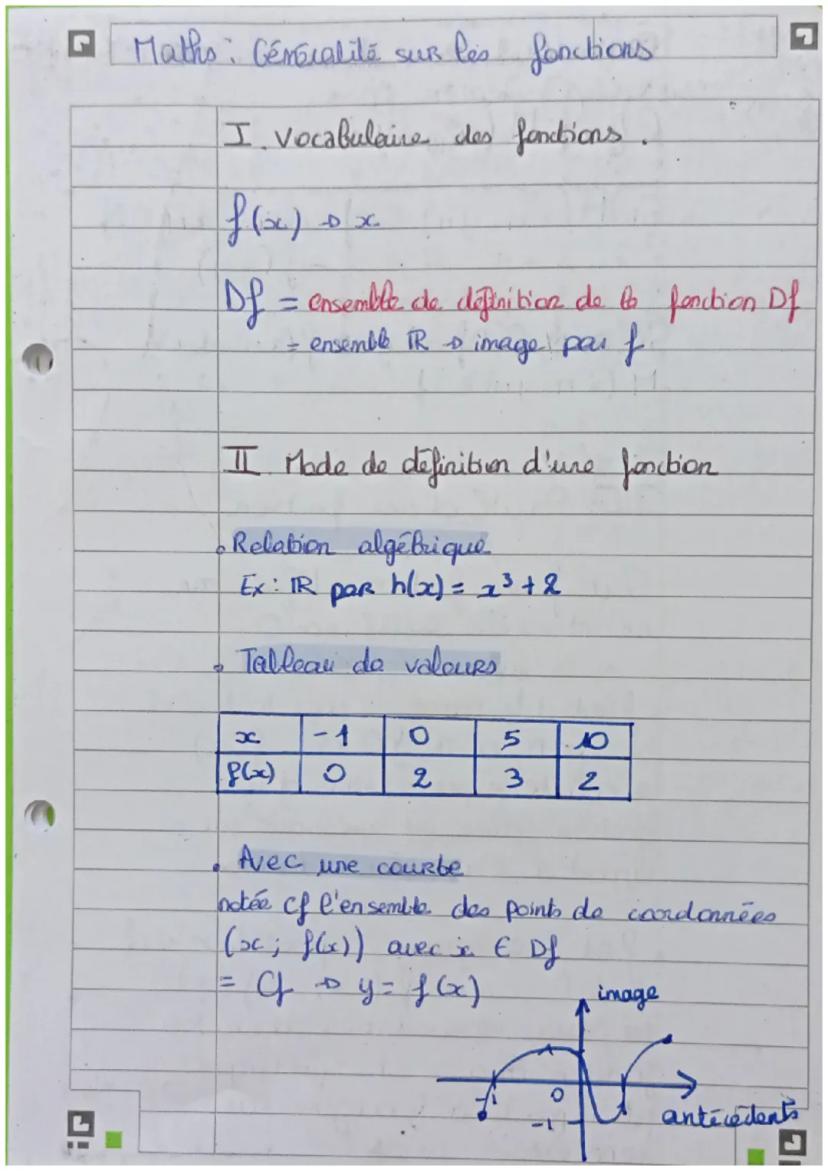 Maths : Généralité sur les fonctions
I. Vocabulaire des fonctions.
f(x) → x
Df = ensemble de définition de la fonction Df
= ensemble ℝ → image par f
II Mode de définition d'une fonction
• Relation algébrique
Ex : ℝ par h(x) = x³ + 2
• Tableau de valeurs
x -1 0 5 10
f(x) 0 2 3 2
• Avec une courbe
notée Cf l'ensemble des points de coordonnées
(x ; f(x)) avec x ∈ Df
= Cf → y = f(x)
image
-1 0
-1 antécédents